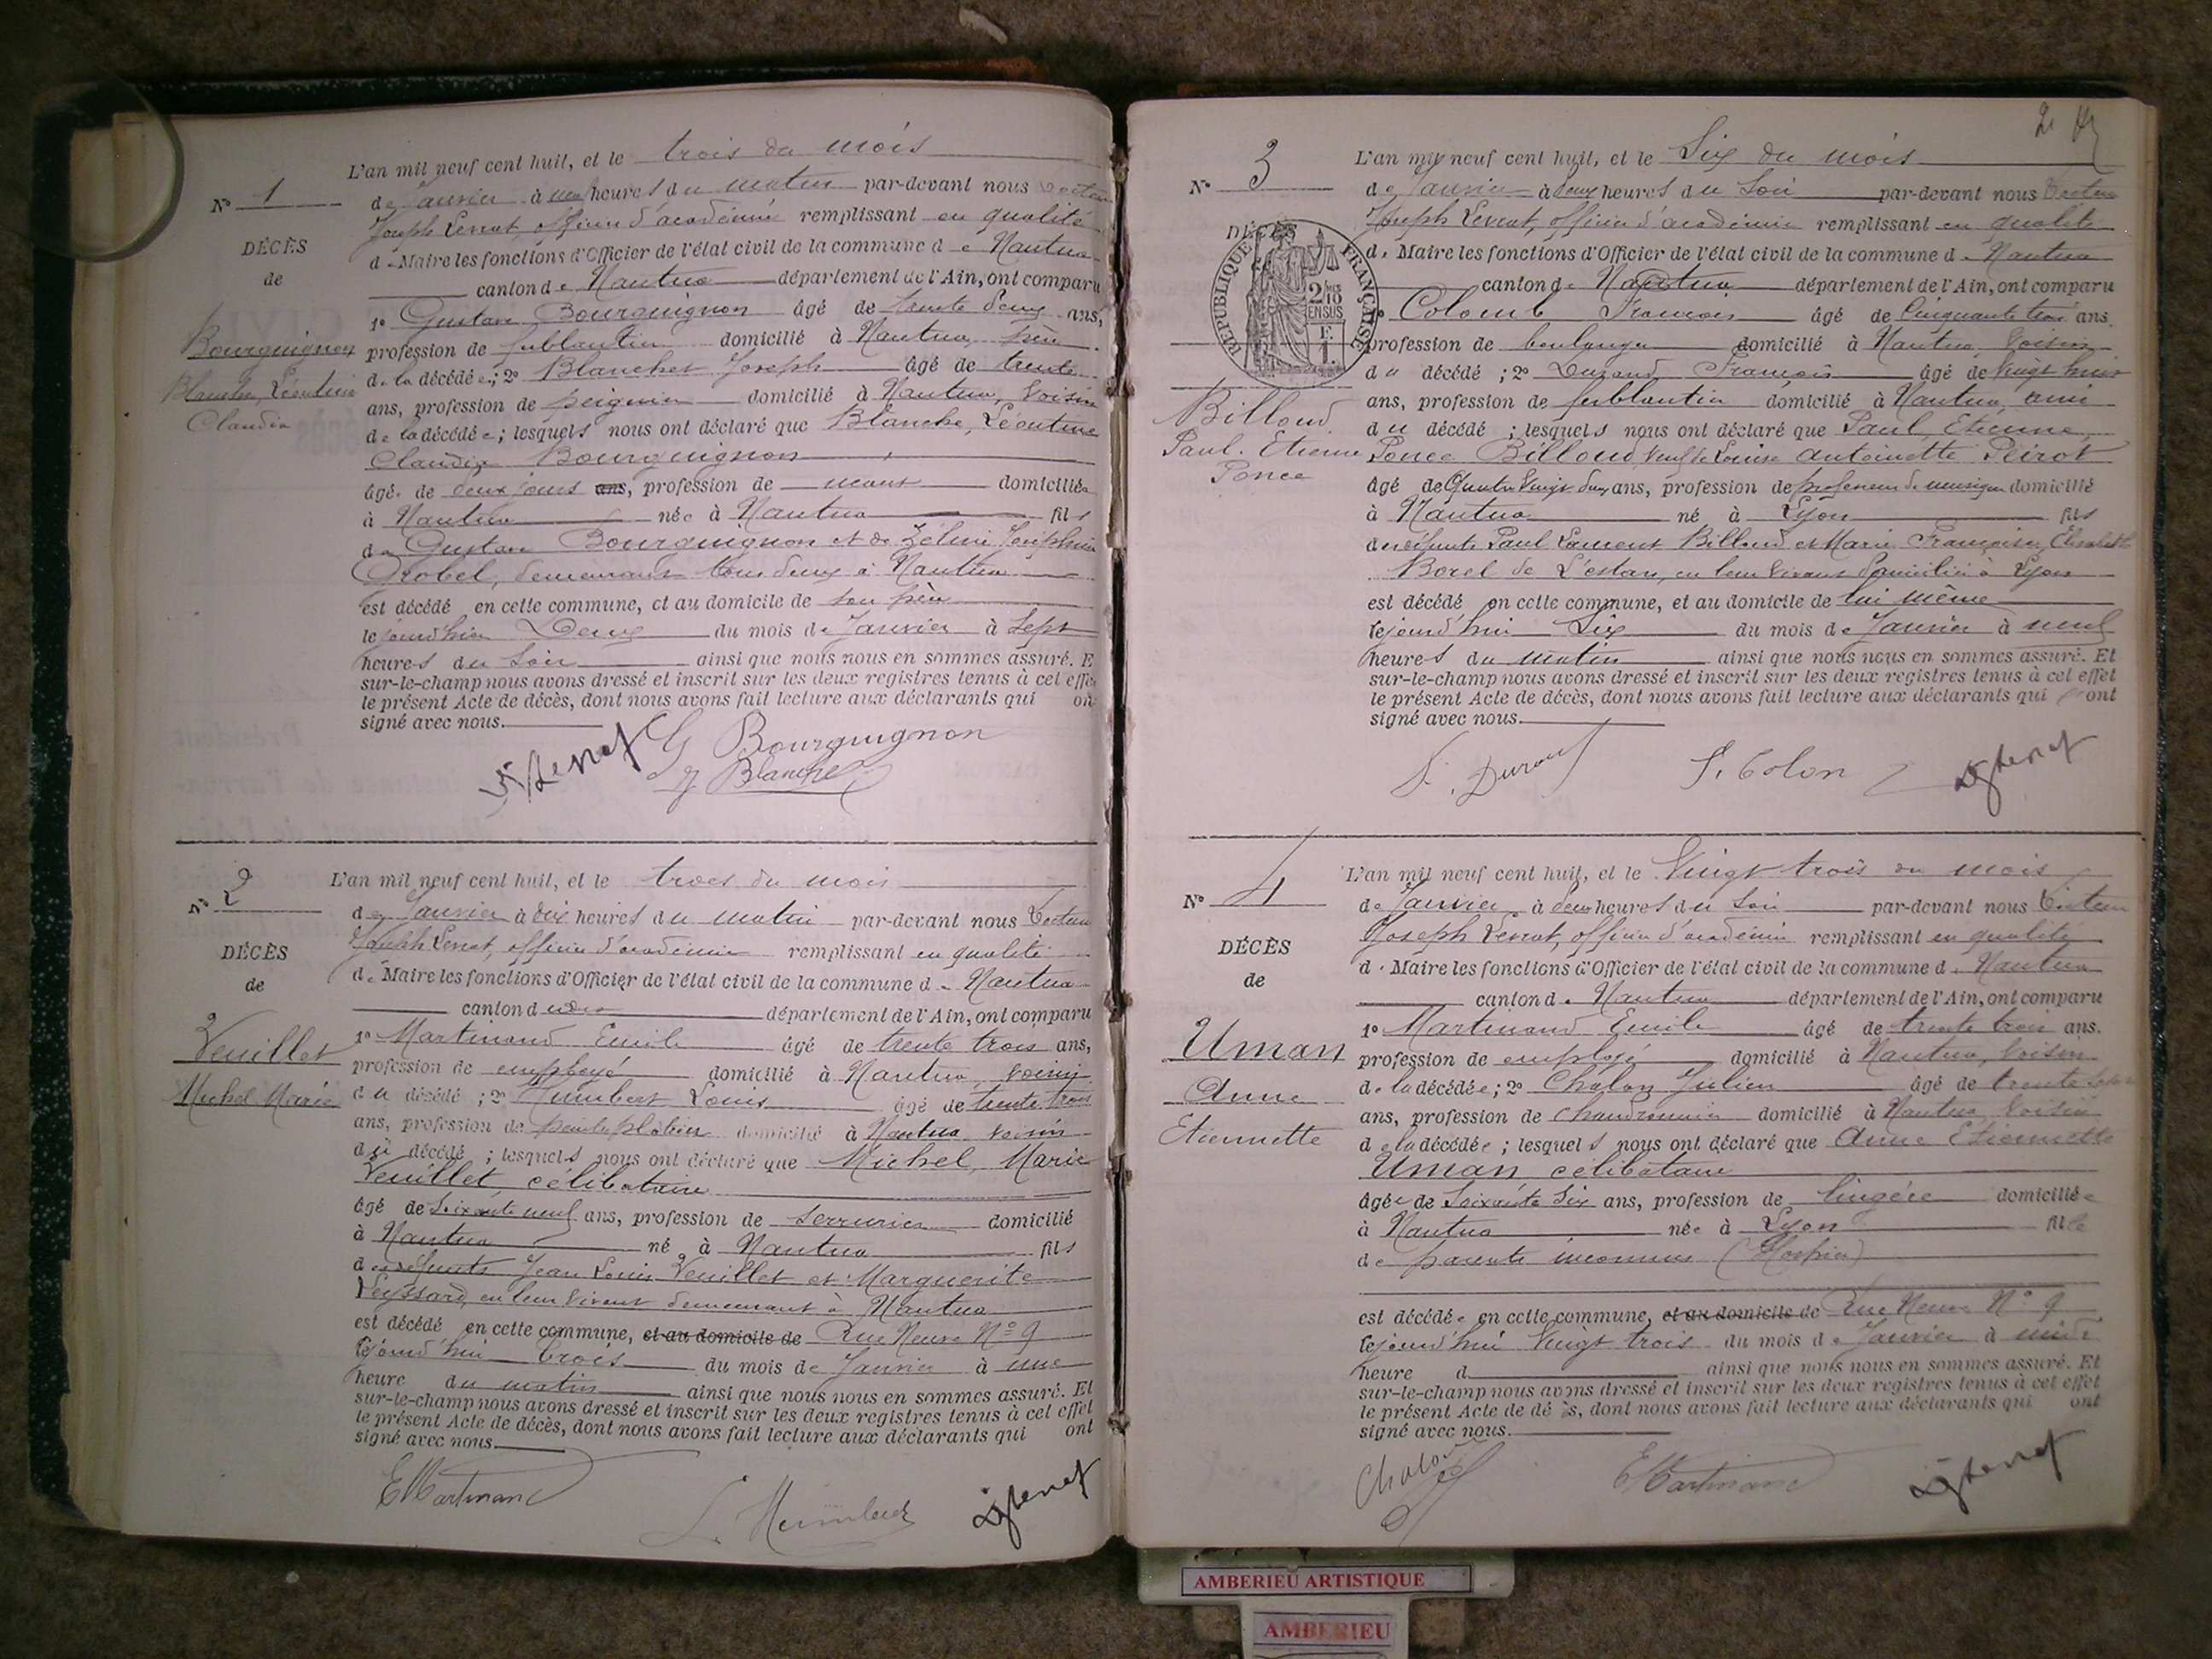 L'an mil neuf cent huit, et le trois du mois
N° 1
de Janvier à heures du matin par-devant nous Victor
Joseph Levrat, officier d'académie remplissant en qualité
DÉCÈS
de
de Maire les fonctions d'Officier de l'état civil de la commune de Nantua
canton de Nantua département de l'Ain, ont comparu
1° Gustave Bourguignon âgé de trente deux ans,
Bourguignon
profession de ferblantier domicilié à Nantua, père
Blanche, Léontine
de la décédée; 2° Blanchet Joseph âgé de trente
Claudia
ans, profession de peignier domicilié à Nantua, voisin
de la décédée; lesquels nous ont déclaré que Blanche, Léontine
Claudia Bourguignon
âgée de deux jours ans, profession de domiciliée
à Nantua née à Nantua fils
de Gustave Bourguignon et de Zélime Joséphine
Grobel, demeurant tous deux à Nantua
est décédé en cette commune, et au domicile de son père
le jourd'hier Deux du mois de Janvier à sept
heures du soir ainsi que nous nous en sommes assuré. E
sur-le-champ nous avons dressé et inscrit sur les deux registres tenus à cet effe
le présent Acte de décès, dont nous avons fait lecture aux déclarants qui on
signé avec nous.
G Bourguignon
J. Blanchet
N° 2
L'an mil neuf cent huit, et le trois du mois
de Janvier à dix heures du matin par-devant nous Victor
Joseph Levrat, officier d'académie remplissant en qualité
DÉCÈS
de
de Maire les fonctions d'Officier de l'état civil de la commune de Nantua
canton dudit département de l'Ain, ont comparu
Veuillet
1° Martinand Emile âgé de trente trois ans,
profession de employé domicilié à Nantua, voisin
Michel Marie
du décédé; 2° Humbert Louis âgé de trente trois
ans, profession de domicilié à Nantua voisin
du décédé; lesquels nous ont déclaré que Michel, Marie
Veuillet, célibataire
âgé de soixante neuf ans, profession de serrurier domicilié
à Nantua né à Nantua fils
des défunts Jean Louis Veuillet et Marguerite
Leyssard, en leur vivant demeurant à Nantua
est décédé en cette commune, et au domicile de Rue Neuve N° 9
le jourd'hui trois du mois de Janvier à une
heure du matin ainsi que nous nous en sommes assuré. Et
sur-le-champ nous avons dressé et inscrit sur les deux registres tenus à cet effet
le présent Acte de décès, dont nous avons fait lecture aux déclarants qui ont
signé avec nous.
E Martinand
L. Humbert
2
N° 3
L'an mil neuf cent huit, et le Six du mois
de Janvier à deux heures du Soir par-devant nous Victor
Joseph Levrat, officier d'académie remplissant en qualité
DÉCÈS
RÉPUBLIQUE FRANÇAISE
de Maire les fonctions d'Officier de l'état civil de la commune de Nantua
canton de Nantua département de l'Ain, ont comparu
Colomb François âgé de Cinquante trois ans
profession de boulanger domicilié à Nantua, voisin
du décédé; 2° Durand François âgé de Vingt huit
Billoud
ans, profession de ferblantier domicilié à Nantua, ami
Paul. Etienne
du décédé; lesquels nous ont déclaré que Paul, Etienne,
Ponce
Ponce Billoud, veuf de Louise Antoinette Peirot
âgé de Quatre vingt deux ans, profession de professeur de musique domicilié
à Nantua né à Lyon fils
des défunts Paul Laurent Billoud et Marie Françoise, Elisabeth
Borel de L'estan, en leur vivant domiciliés à Lyon
est décédé en cette commune, et au domicile de lui même
le jourd'hui Six du mois de Janvier à neuf
heures du matin ainsi que nous nous en sommes assuré. Et
sur-le-champ nous avons dressé et inscrit sur les deux registres tenus à cet effet
le présent Acte de décès, dont nous avons fait lecture aux déclarants qui ont
signé avec nous.
F. Durand
F. Colon
N° 4
L'an mil neuf cent huit, et le Vingt trois du mois
de Janvier à deux heures du Soir par-devant nous Victor
Joseph Levrat, officier d'académie remplissant en qualité
DÉCÈS
de
de Maire les fonctions d'Officier de l'état civil de la commune de Nantua
canton de Nantua département de l'Ain, ont comparu
Uman
1° Martinand Emile âgé de trente trois ans.
profession de employé domicilié à Nantua, voisin
Anne
de la décédée; 2° Chalon Julien âgé de trente
Etiennette
ans, profession de chaudronnier domicilié à Nantua, voisin
de la décédée; lesquels nous ont déclaré que Anne Etiennette
Uman célibataire
âgée de Soixante Six ans, profession de lingère domiciliée
à Nantua née à Lyon fille
de parents inconnus (Hospice)
est décédée en cette commune, et au domicile de Rue Neuve N° 9
le jourd'hui Vingt trois du mois de Janvier à midi
heure d ainsi que nous nous en sommes assuré. Et
sur-le-champ nous avons dressé et inscrit sur les deux registres tenus à cet effet
le présent Acte de décès, dont nous avons fait lecture aux déclarants qui ont
signé avec nous.
Chalon
E Martinand
AMBERIEU ARTISTIQUE
AMBERIEU